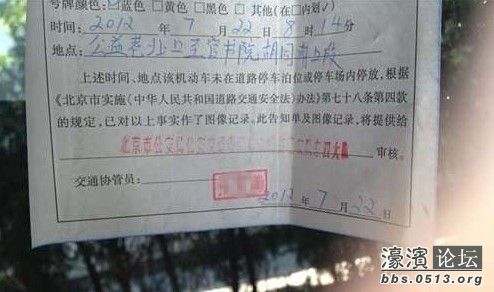 号牌颜色:☑蓝色 □黄色 □黑色 □其他(在□内划√)
时间: 2012 年 7 月 22 日 8 时 14分
地点:
上述时间、地点该机动车未在道路停车泊位或停车场内停放,根据
《北京市实施〈中华人民共和国道路交通安全法〉办法》第七十八条第四款
的规定,已对以上事实作了图像记录,此告知单及图像记录,将提供给
北京市公安局公安交通 审核。
交通协管员:
2012 年 7 月 22 日
濠滨 论坛
bbs.0513.org